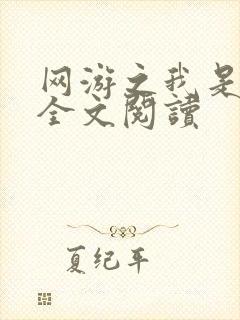 网游之我是
全文阅读
夏纪年